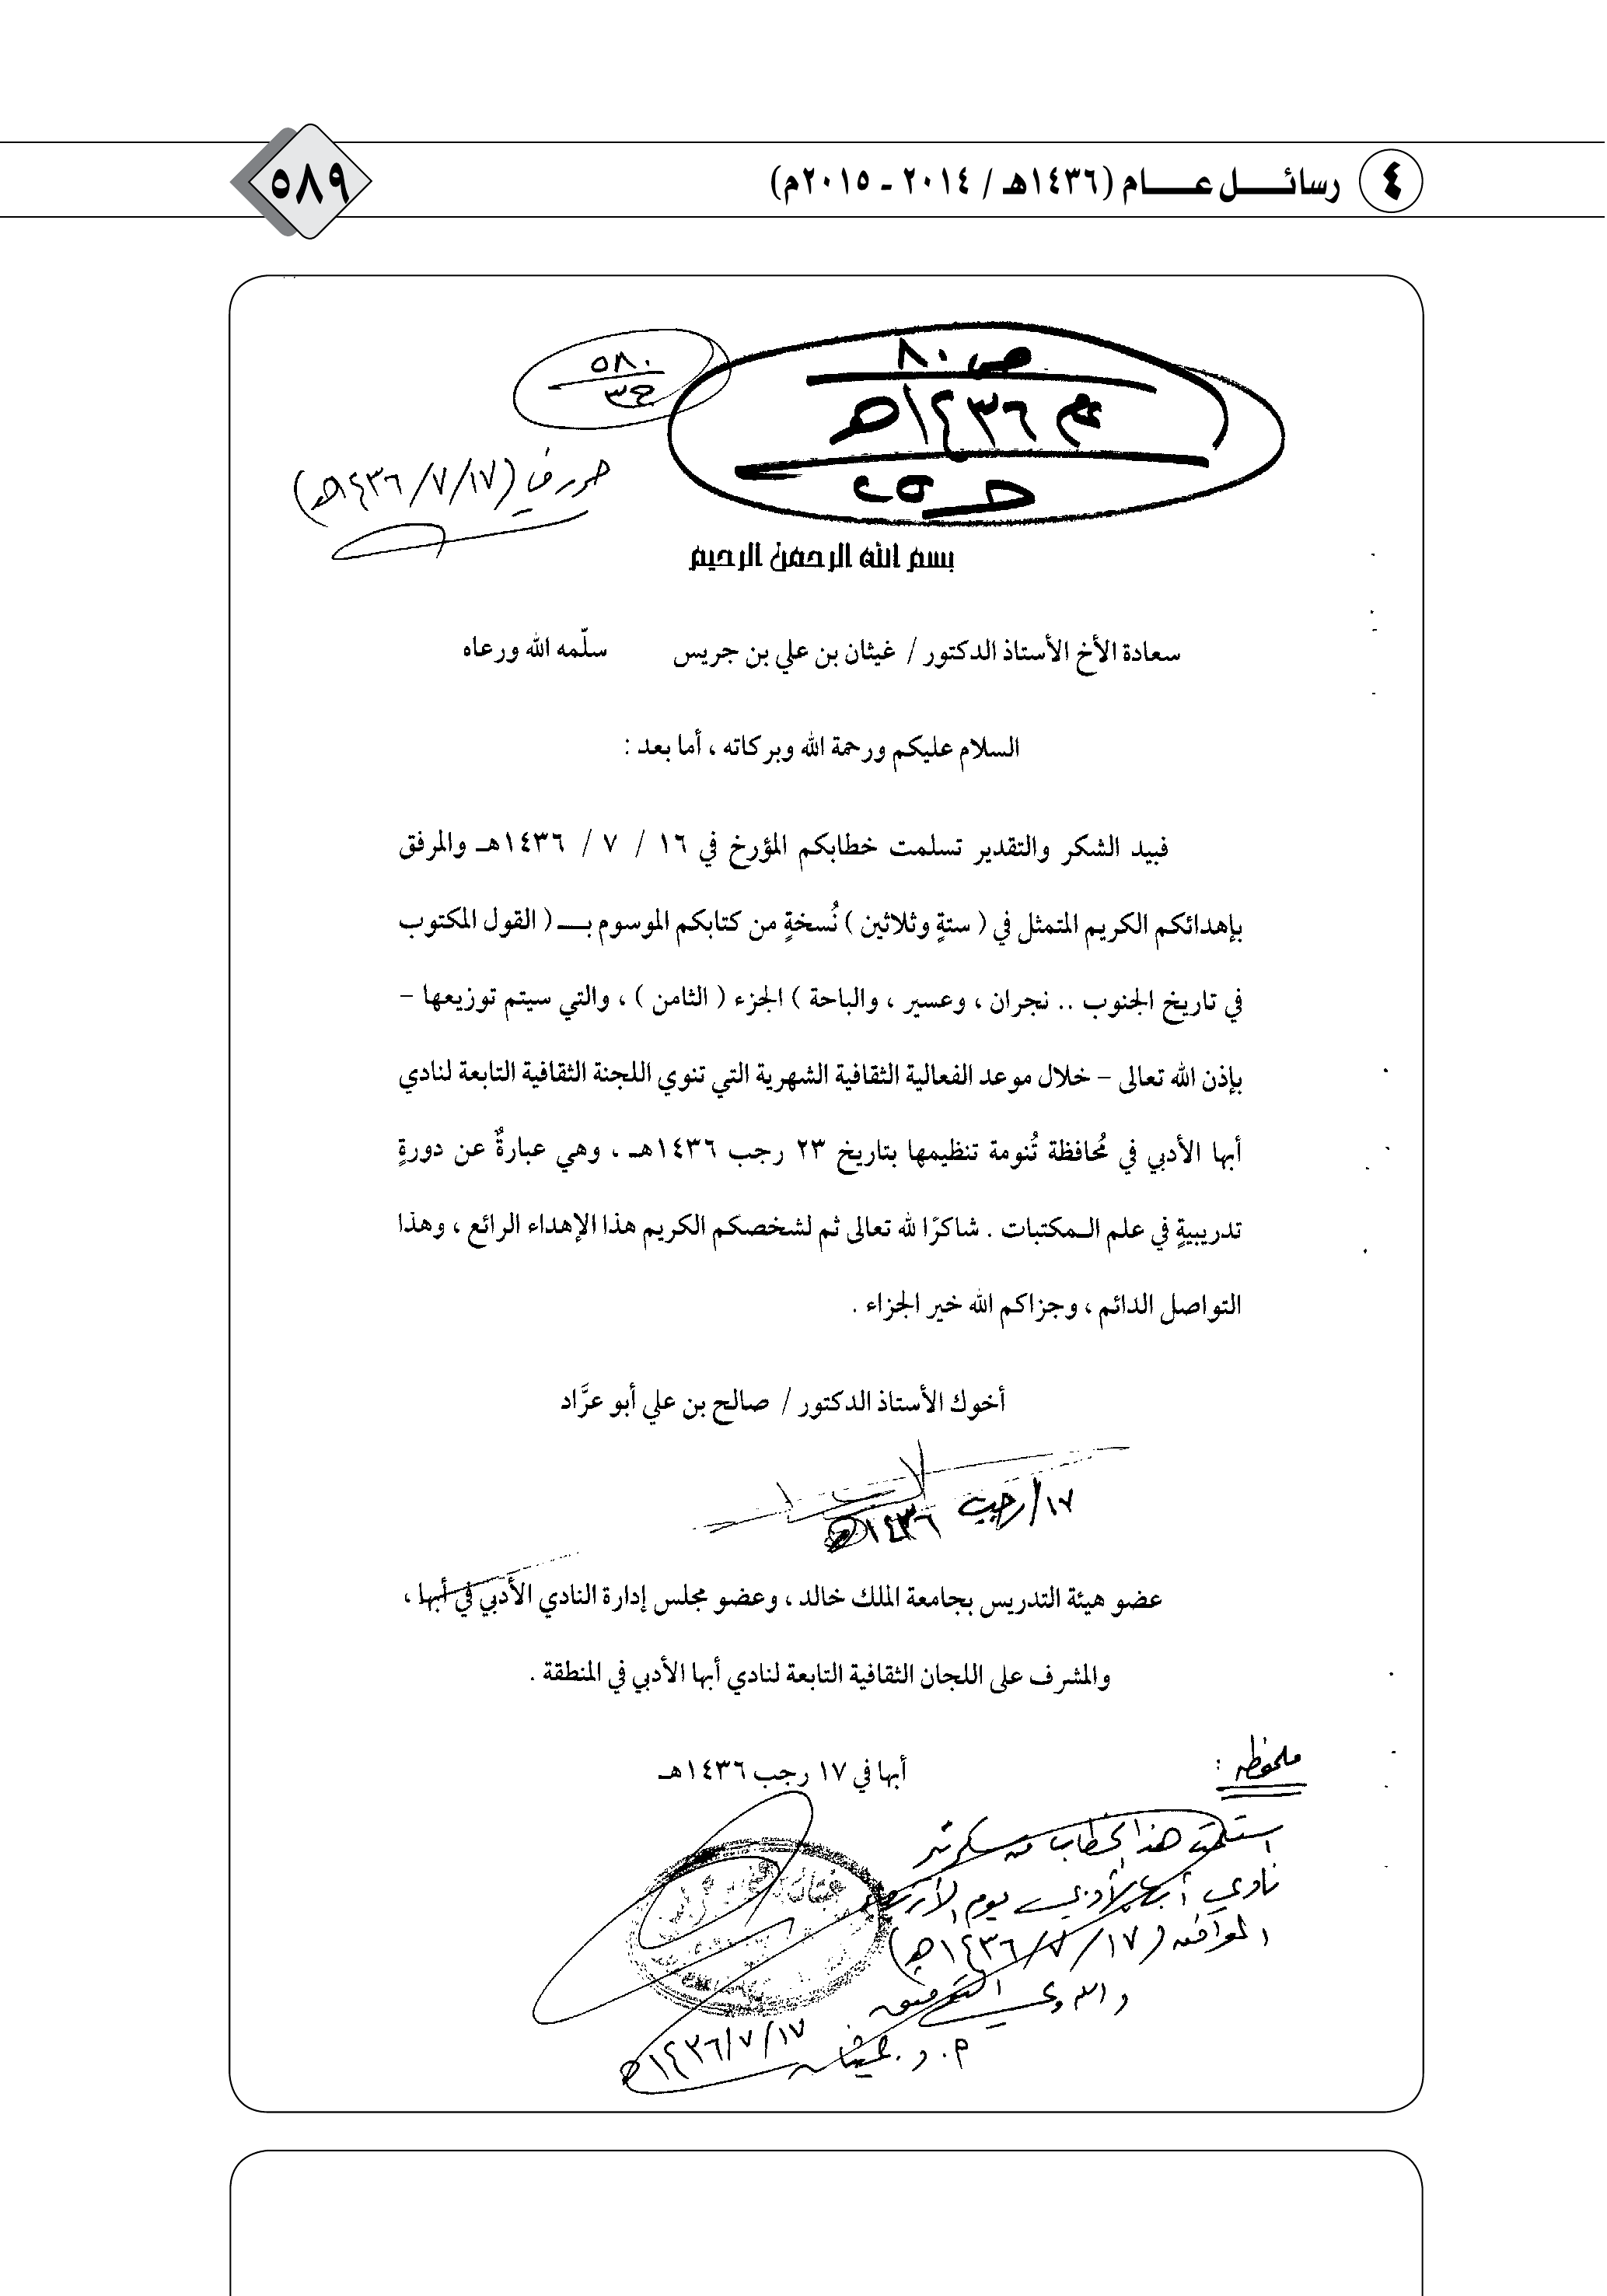 ٤ رسائل عام (١٤٣٦هـ / ٢٠١٤ - ٢٠١٥م)
٥٨٩
ص ٨٠
١٤٣٦هـ
٥٨٠
حرر في (١٧/ ٧/ ١٤٣٦هـ)
بسم الله الرحمن الرحيم
سعادة الأخ الأستاذ الدكتور / غيثان بن علي بن جريس سلّمه الله ورعاه
السلام عليكم ورحمة الله وبركاته ، أما بعد :
فبيد الشكر والتقدير تسلمت خطابكم المؤرخ في ١٦ / ٧ / ١٤٣٦هـ والمرفق
بإهدائكم الكريم المتمثل في ( ستةٍ وثلاثين ) نُسخةٍ من كتابكم الموسوم بـــ ( القول المكتوب
في تاريخ الجنوب .. نجران ، وعسير ، والباحة ) الجزء ( الثامن ) ، والتي سيتم توزيعها –
بإذن الله تعالى – خلال موعد الفعالية الثقافية الشهرية التي تنوي اللجنة الثقافية التابعة لنادي
أبها الأدبي في مُحافظة تُنومة تنظيمها بتاريخ ٢٣ رجب ١٤٣٦هـ ، وهي عبارةٌ عن دورةٍ
تدريبيةٍ في علم الـمكتبات . شاكرًا لله تعالى ثم لشخصكم الكريم هذا الإهداء الرائع ، وهذا
التواصل الدائم ، وجزاكم الله خير الجزاء .
أخوك الأستاذ الدكتور / صالح بن علي أبو عرَّاد
١٧/ رجب ١٤٣٦هـ
عضو هيئة التدريس بجامعة الملك خالد ، وعضو مجلس إدارة النادي الأدبي في أبها ،
والمشرف على اللجان الثقافية التابعة لنادي أبها الأدبي في المنطقة .
أبها في ١٧ رجب ١٤٣٦هـ
ملحوظه :
استلمت هذا الخطاب من سكرتير
نادي أبها الأدبي يوم الأربعاء
الموافق (١٧/ ٧/ ١٤٣٦هـ)
والله ولي التوفيق
أ. د. غيثان
١٧/ ٧/ ١٤٣٦هـ